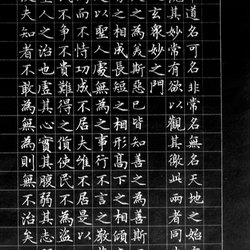 道名可名非常名無名天地之始
觀其妙常有欲以觀其徼此兩者同
之玄衆妙之門
之為美斯惡已皆知善之為善斯
之相成長短之相形高下之相傾
是以聖人處無為之事行不言之教
而不恃功成不居夫唯不居是以
民不爭不貴難得之貨使民不為盜
聖人之治也虛其心實其腹弱其志
使夫知者不敢為無為則無不治矣